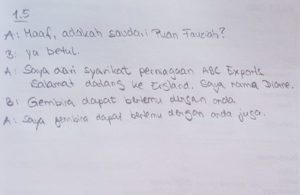 1.5
A: Maaf, adakah saudari Puan Fauziah?
B: Ya betul.
A: Saya dari syarikat perniagaan ABC Exports.
Selamat datang ke England. Saya nama Diane.
B: Gembira dapat bertemu dengan anda.
A: Saya gembira dapat bertemu dengan anda juga.